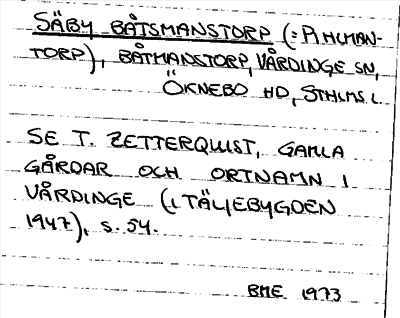 SÄBY BÅTSMANSTORP (:PIHLMAN-
TORP), BÅTMANSTORP, VÅRDINGE SN,
ÖKNEBO HD, STHLMS L.
SE T. ZETTERQUIST, GAMLA
GÅRDAR OCH ORTNAMN I
VÅRDINGE (I TÄLJEBYGDEN
1947), S. 54.
BME 1973